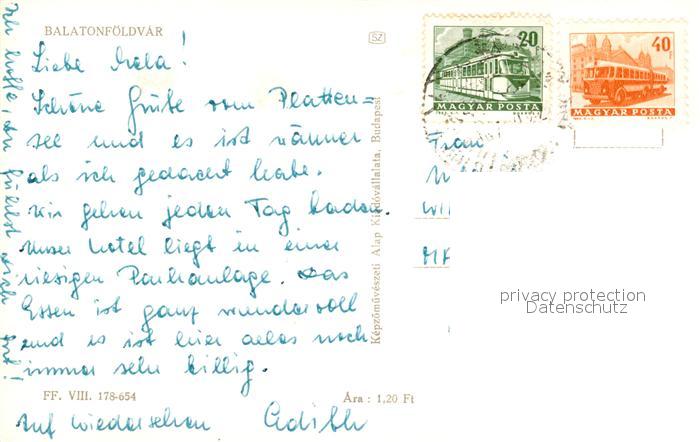 BALATONFÖLDVÁR
SZ
Liebe Mela!
Schöne Grüße vom Platten=
see und es ist wärmer
als ich gedacht habe.
Wir gehen jeden Tag baden.
Unser Hotel liegt in einer
riesigen Parkanlage. Das
Essen ist ganz wundervoll
und es ist hier alles noch
immer sehr billig.
Auf Wiedersehen
Ich hoffe, du fühlst dich gut!
FF. VIII. 178-654
Ára : 1,20 Ft
Képzőművészeti Alap Kiadóvállalata, Budapest
20
MAGYAR POSTA
40
MAGYAR POSTA
Frau
privacy protection
Datenschutz